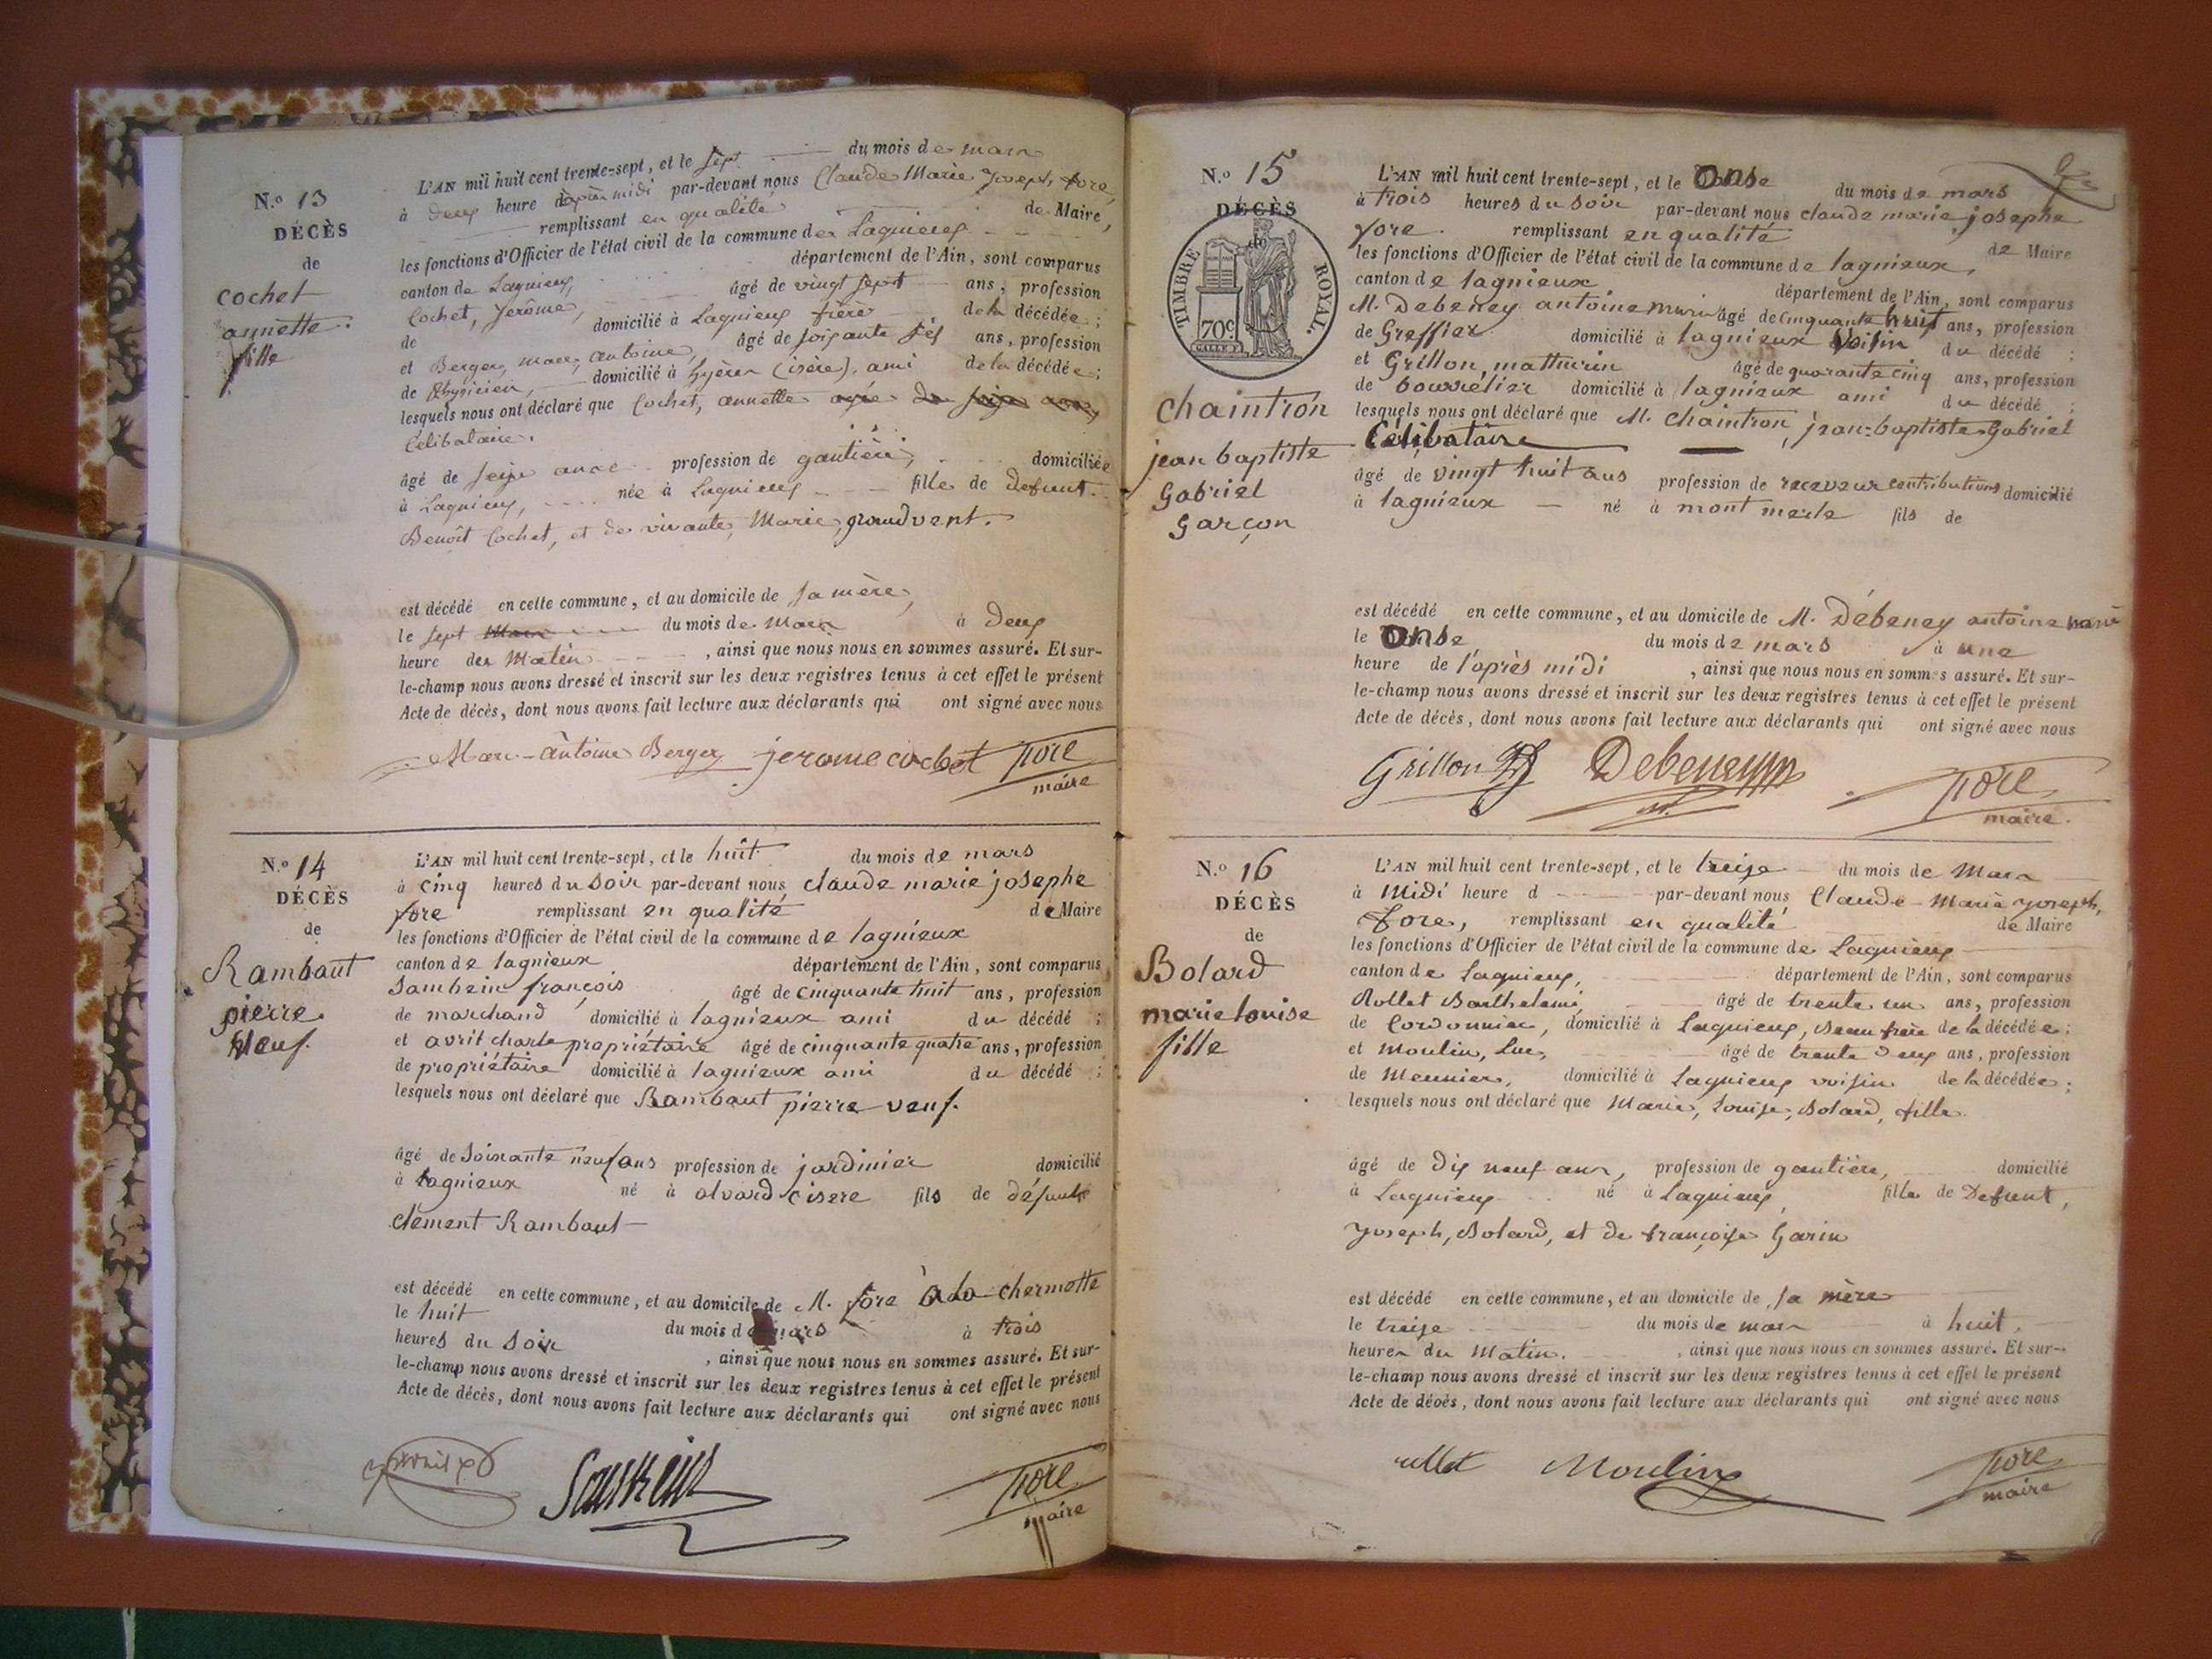 N.º 13
DÉCÈS
de
cochet
annette.
fille
L'AN mil huit cent trente-sept, et le sept du mois de mars
à deux heure après midi par-devant nous Claude Marie Joseph, fore,
remplissant en qualité de Maire,
les fonctions d'Officier de l'état civil de la commune de Lagnieux
canton de Lagnieux, département de l'Ain, sont comparus
Cochet, Jerôme, âgé de vingt sept ans, profession
de domicilié à Lagnieux frère de la décédée ;
et Berger, marc, antoine, âgé de soixante six ans, profession
de Physicien, domicilié à hyères (isère), ami de la décédée ;
lesquels nous ont déclaré que Cochet, annette
Célibataire.
âgé de seize ans profession de gantière, domiciliée
à Lagnieux, née à Lagnieux fille de defunt
Benoît Cochet, et de vivante, Marie, grandvent.
est décédé en cette commune, et au domicile de sa mère,
le sept du mois de mars à deux
heure du matin, ainsi que nous nous en sommes assuré. Et sur-
le-champ nous avons dressé et inscrit sur les deux registres tenus à cet effet le présent
Acte de décès, dont nous avons fait lecture aux déclarants qui ont signé avec nous
Marc-antoine Berger jerome cochet fore
maire
N.º 14
DÉCÈS
de
Rambaut
pierre
Veuf.
L'AN mil huit cent trente-sept, et le huit du mois de mars
à cinq heures du soir par-devant nous claude marie josephe
fore remplissant en qualité de Maire
les fonctions d'Officier de l'état civil de la commune de lagnieux
canton de lagnieux département de l'Ain, sont comparus
Sambein françois âgé de cinquante huit ans, profession
de marchand domicilié à lagnieux ami du décédé ;
et avrit charle propriétaire âgé de cinquante quatre ans, profession
de propriétaire domicilié à lagnieux ami du décédé ;
lesquels nous ont déclaré que Rambaut pierre veuf.
âgé de Soixante neuf ans profession de jardinier domicilié
à lagnieux né à alvard cisere fils de défunt
clement Rambaut
est décédé en cette commune, et au domicile de M. fore à la chermette
le huit du mois de mars à trois
heures du Soir, ainsi que nous nous en sommes assuré. Et sur-
le-champ nous avons dressé et inscrit sur les deux registres tenus à cet effet le présent
Acte de décès, dont nous avons fait lecture aux déclarants qui ont signé avec nous
fore
maire
N.º 15
DÉCÈS
de
TIMBRE ROYAL.
70c
chaintron
jean baptiste
Gabriel
garçon
L'AN mil huit cent trente-sept, et le onse du mois de mars
à trois heures du soir par-devant nous claude marie josephe
fore. remplissant en qualité de Maire
les fonctions d'Officier de l'état civil de la commune de lagnieux,
canton de lagnieux département de l'Ain, sont comparus
M. Debeney antoine marie âgé de cinquante huit ans, profession
de Greffier domicilié à lagnieux voisin du décédé ;
et Grillon, mathurin âgé de quarante cinq ans, profession
de bourrelier domicilié à lagnieux ami du décédé ;
lesquels nous ont déclaré que M. chaintron, jean-baptiste Gabriel
Célibataire
âgé de vingt huit ans profession de receveur contributions domicilié
à lagnieux né à mont merle fils de
est décédé en cette commune, et au domicile de M. Débeney antoine marie
le onse du mois de mars à une
heure de l'après midi, ainsi que nous nous en sommes assuré. Et sur-
le-champ nous avons dressé et inscrit sur les deux registres tenus à cet effet le présent
Acte de décès, dont nous avons fait lecture aux déclarants qui ont signé avec nous
Grillon Debeney fore
maire.
N.º 16
DÉCÈS
de
Bolard
marie louise
fille
L'AN mil huit cent trente-sept, et le treize du mois de Mars
à Midi heure d par-devant nous Claude-Marie Joseph,
fore, remplissant en qualité de Maire
les fonctions d'Officier de l'état civil de la commune de Lagnieux
canton de Lagnieux, département de l'Ain, sont comparus
Rollet Barthelemi, âgé de trente un ans, profession
de Cordonnier, domicilié à Lagnieux, Beau frere de la décédée ;
et Moulin, Luc, âgé de trente deux ans, profession
de Meunier, domicilié à Lagnieux voisin de la décédée ;
lesquels nous ont déclaré que Marie, Louise, Bolard, fille
âgé de dix neuf ans, profession de gantière, domicilié
à Lagnieux né à Lagnieux, fille de Defunt,
Joseph, Bolard, et de françoise Garin
est décédé en cette commune, et au domicile de sa mère
le treize du mois de mars à huit
heures du Matin., ainsi que nous nous en sommes assuré. Et sur-
le-champ nous avons dressé et inscrit sur les deux registres tenus à cet effet le présent
Acte de décès, dont nous avons fait lecture aux déclarants qui ont signé avec nous
rollet Moulin fore
maire